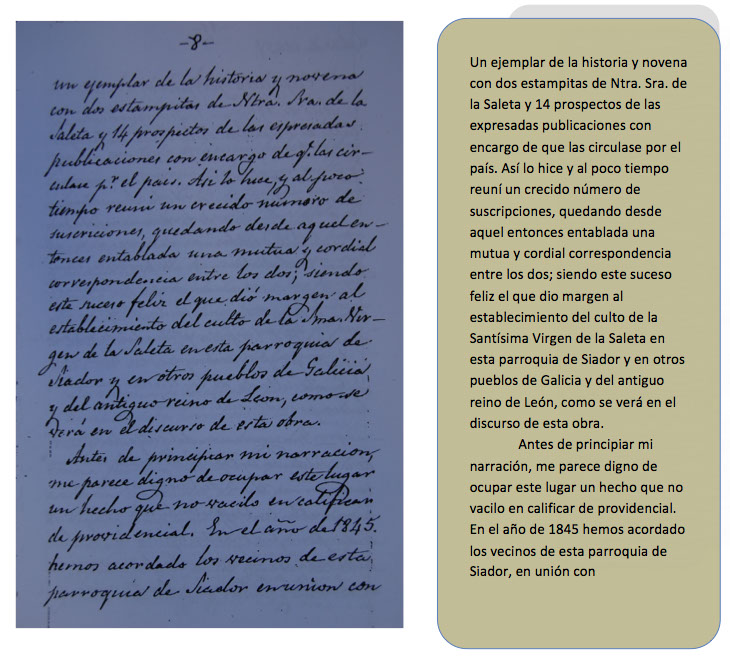 -8-
un ejemplar de la historia y novena
con dos estampitas de Ntra. Sra. de la
Saleta y 14 prospectos de las espresadas
publicaciones con encargo de q.e las cir-
culase p.r el pais. Asi lo hice, y al poco
tiempo reuni un crecido número de
suscriciones, quedando desde aquel en-
tonces entablada una mutua y cordial
correspondencia entre los dos; siendo
este suceso feliz el que dió margen al
establecimiento del culto de la Sma. Vir-
gen de la Saleta en esta parroquia de
Siador y en otros pueblos de Galicia,
y del antiguo reino de Leon, como se
verá en el discurso de esta obra.
Antes de principiar mi narracion,
me parece digno de ocupar este lugar
un hecho que no vacilo en calificar
de providencial. En el año de 1845.
hemos acordado los vecinos de esta
parroquia de Siador en union con
Un ejemplar de la historia y novena
con dos estampitas de Ntra. Sra. de
la Saleta y 14 prospectos de las
expresadas publicaciones con
encargo de que las circulase por el
país. Así lo hice y al poco tiempo
reuní un crecido número de
suscripciones, quedando desde
aquel entonces entablada una
mutua y cordial correspondencia
entre los dos; siendo este suceso
feliz el que dio margen al
establecimiento del culto de la
Santísima Virgen de la Saleta en
esta parroquia de Siador y en otros
pueblos de Galicia y del antiguo
reino de León, como se verá en el
discurso de esta obra.
Antes de principiar mi
narración, me parece digno de
ocupar este lugar un hecho que no
vacilo en calificar de providencial.
En el año de 1845 hemos acordado
los vecinos de esta parroquia de
Siador, en unión con